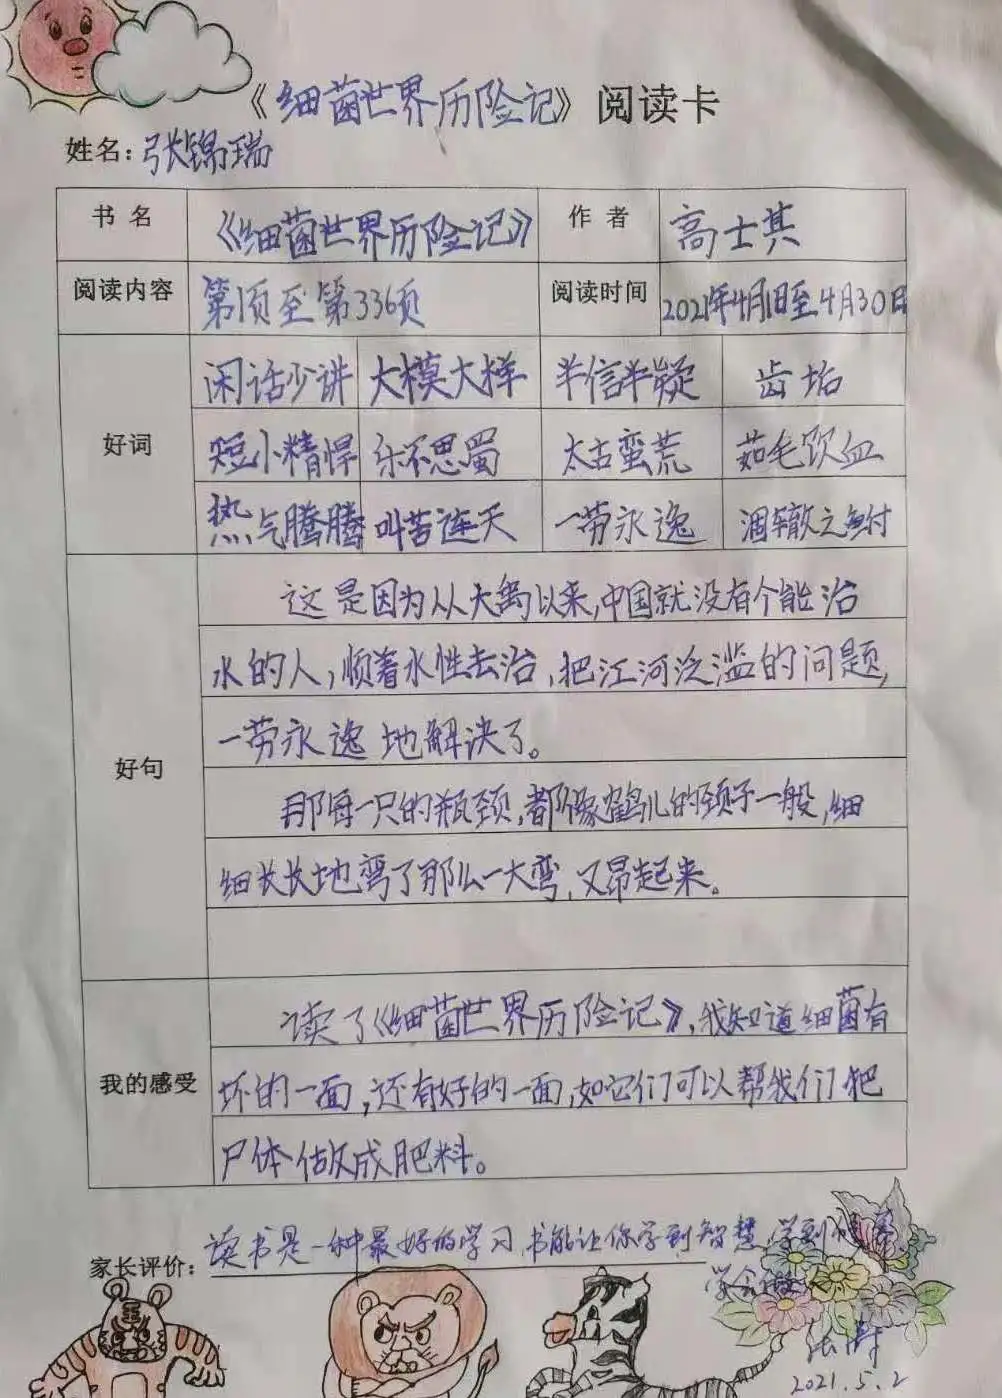 《细菌世界历险记》阅读卡
姓名:张锦瑞
书名 《细菌世界历险记》 作者 高士其
阅读内容 第1页至第336页 阅读时间 2021年4月1日至4月30日
好词
闲话少讲 大模大样 半信半疑 齿垢
短小精悍 乐不思蜀 太古蛮荒 茹毛饮血
热气腾腾 叫苦连天 一劳永逸 涸辙之鲋
好句
这是因为从大禹以来,中国就没有个能治
水的人,顺着水性去治,把江河泛滥的问题,
一劳永逸地解决了。
那每一只的瓶颈,都像鹤儿的颈子一般,细
细长长地弯了那么一大弯,又昂起来。
我的感受
读了《细菌世界历险记》,我知道细菌有
坏的一面,还有好的一面,如它们可以帮我们把
尸体做成肥料。
家长评价:读书是一种最好的学习 书能让你学到智慧 学到
学会做
2021.5.2